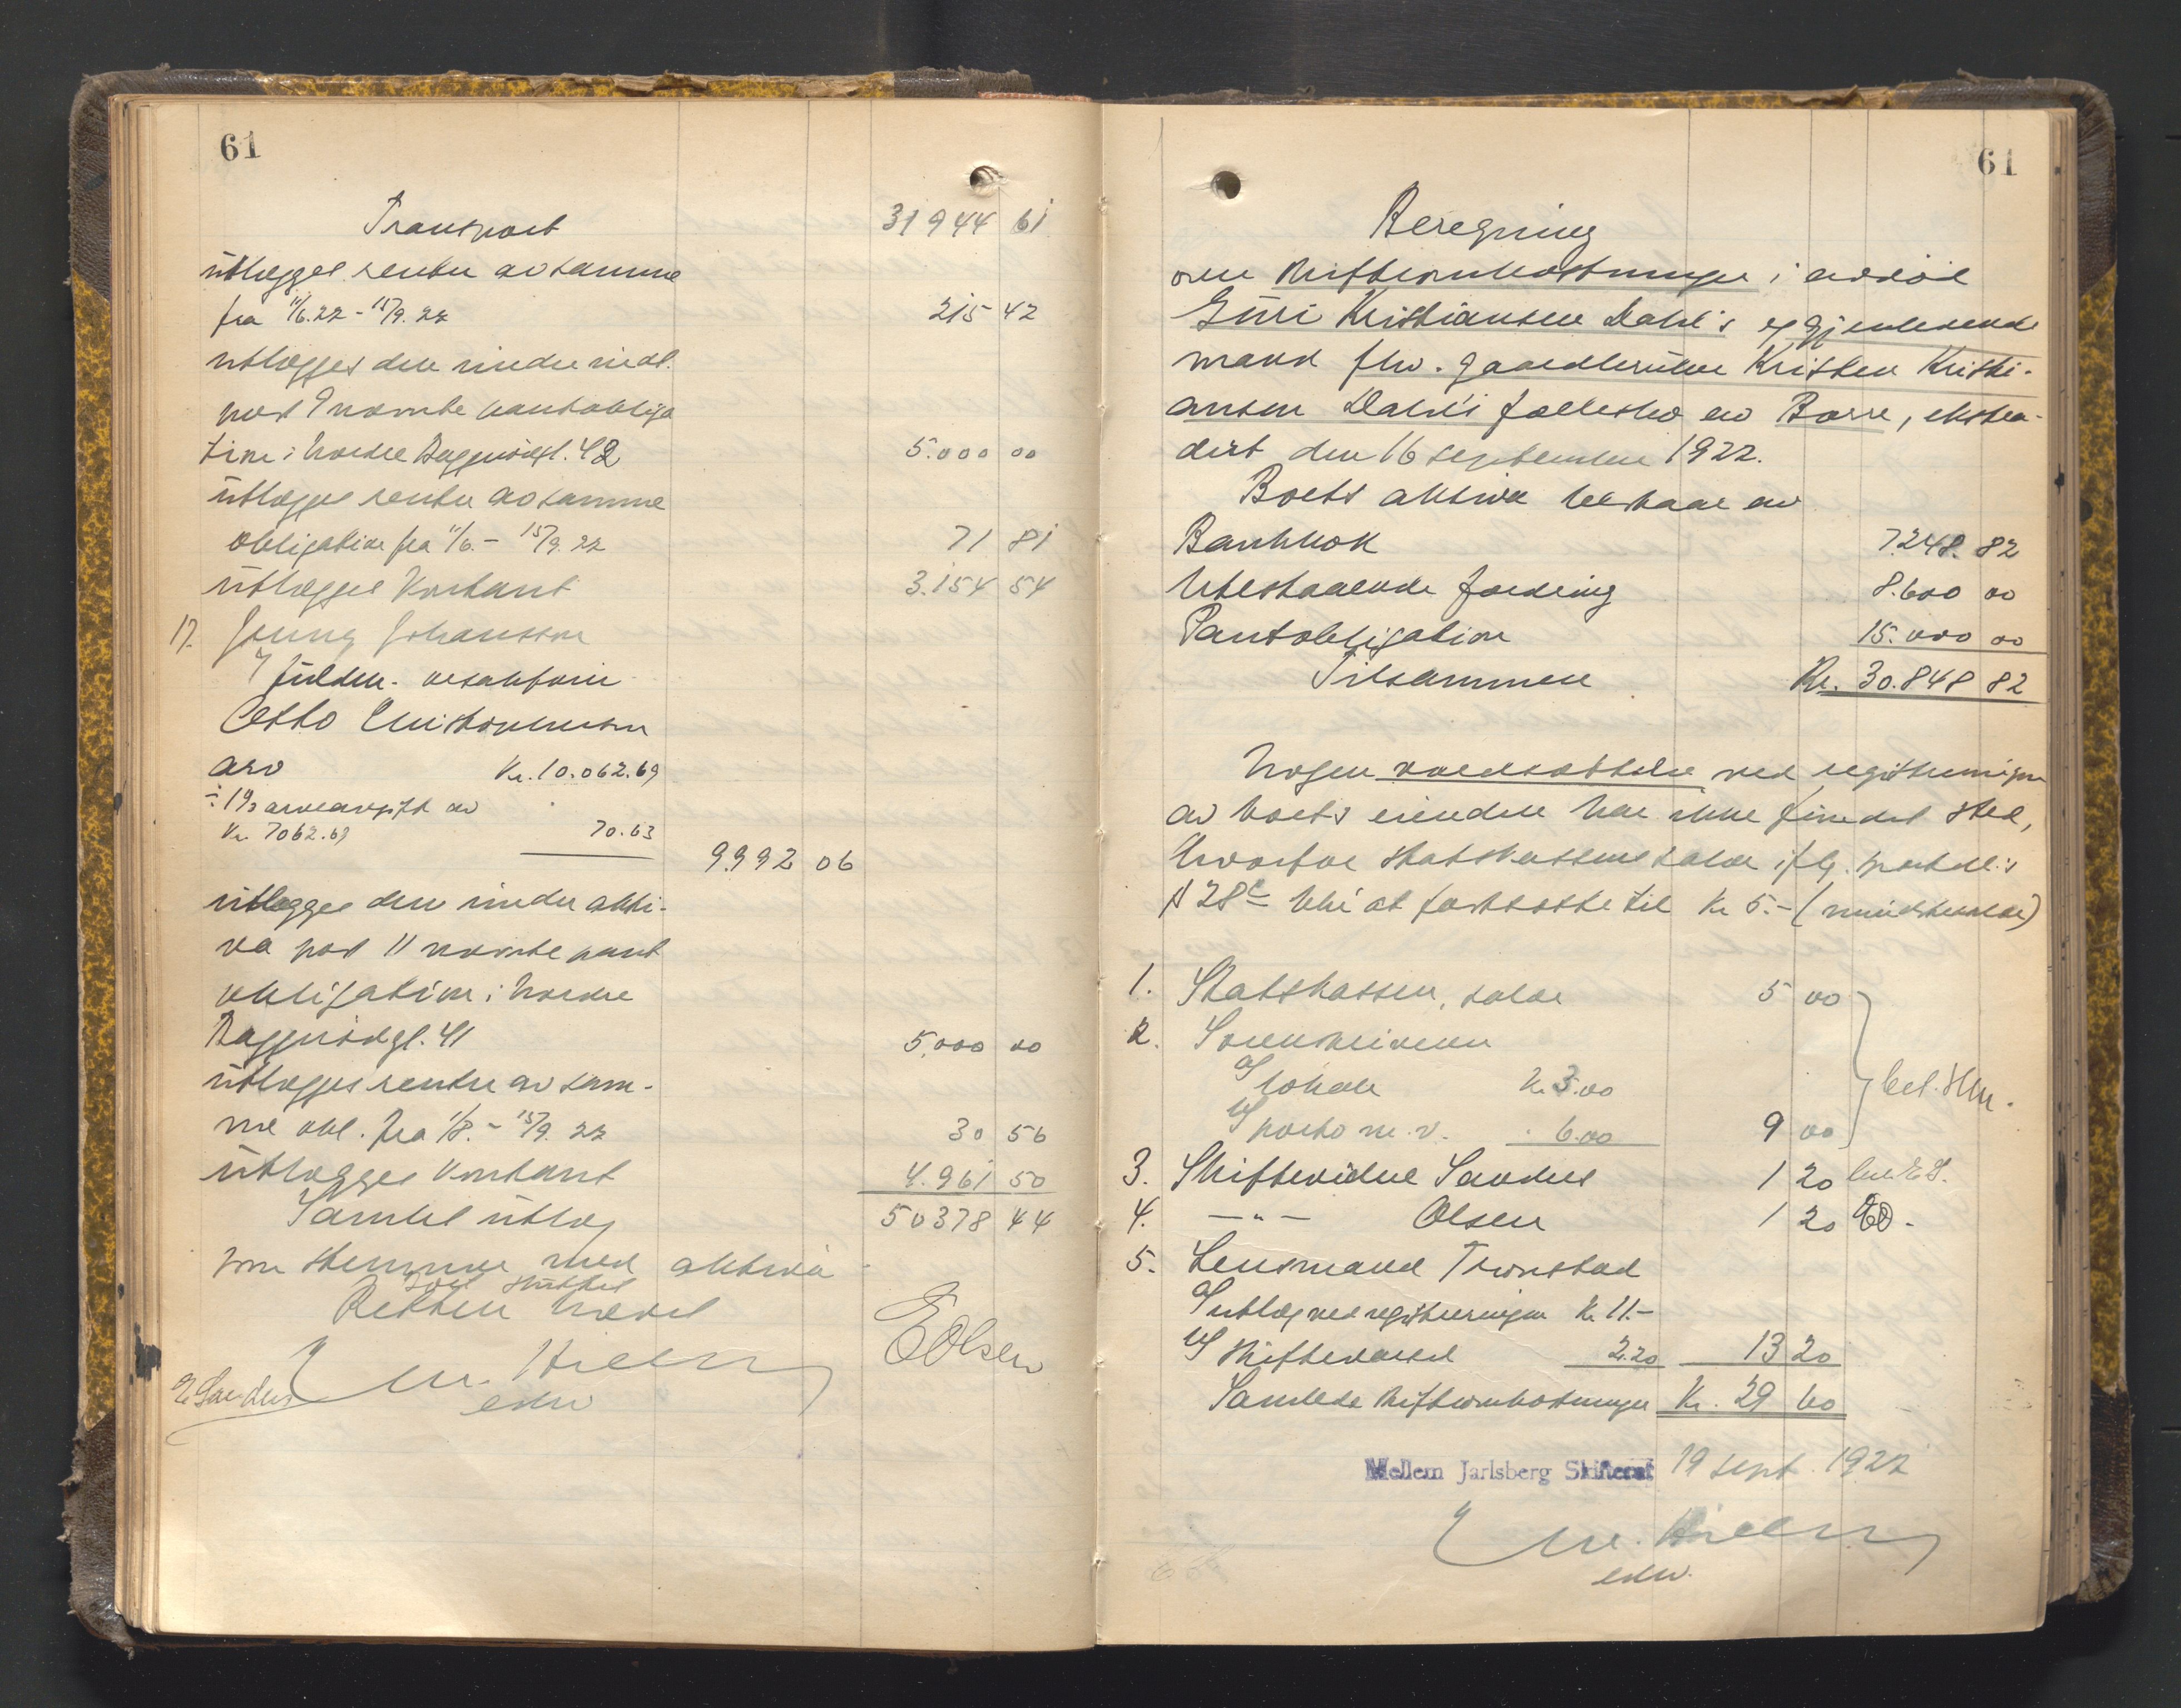 61
Transport 31944 61
utlægges renter av samme
fra 11/6.22 - 15/9.22 215 42
utlægges den under akt.
post 9 nævnte pantobliga
tion i Nordre Baggerødgt. 42 5.000 00
utlægges renter av samme
obligation fra 11/6. - 15/9.22 71 81
utlægges kontant 3.154 54
17. Jenny Johansson
Otto Christophersen
arv Kr. 10.062.69
÷ 1% arveavgift av
Kr. 7062.69 70.63
9.992 06
utlægges den under akti-
va post 11 nævnte pant
obligation i Nordre
Baggerødgt. 41 5.000 00
utlægges renter av sam-
me obl. fra 1/8. - 15/9.22 30 56
utlægges kontant 4.961 50
Samlet utlæg 50378 44
som stemmer med aktiva
Boet sluttet
Retten hævet
E. Olsen
E. Sandus
61
Beregning
over skifteomkostninger i avdøde
Guri Kristiansen Dahl's og gjenlevende
mand fhv. gaardbruker Kristen Kristi-
ansen Dahl's fællesbo av Borre, ekstra-
dert den 16 september 1922.
Boets aktiva bestaar av
Bankbok 7.248. 82
Utestaaende fordring 8.600 00
Pantobligation 15.000 00
Tilsammen Kr. 30.848 82
Nogen værdsættelse ved registreringen
av boets eiendele har ikke fundet sted,
hvorfor statskassens salær ifg. sportell:s
§ 28c blir at fastsætte til Kr 5.- (mindstesalær)
1. Statskassen, salær 5 00
2. Sorenskriveren
a) lokale Kr. 3.00
b) porto m. v. 6.00 9 00
3. Skiftevidne Sandus 1 20
4. —"— Olsen 1 20 EO.
5. Lensmand Tronstad
a) utlæg ved registreringen Kr. 11.-
b) skiftevarsel 2.20 13 20
Samlede skifteomkostninger Kr. 29 60
Mellem Jarlsberg Skifteret 19 sept. 1922